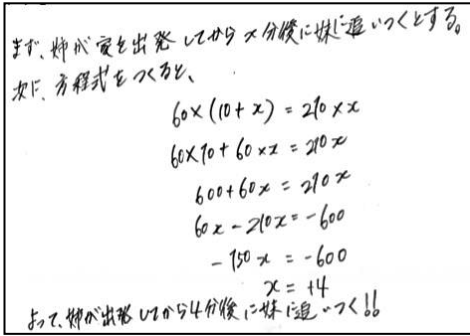 まず、姉が家を出発してからx分後に妹に追いつくとする。
次に、方程式をつくると、
60×(10+x)=210×x
60×10+60×x=210x
600+60x=210x
60x-210x=-600
-150x=-600
x=+4
よって、姉が出発してから4分後に妹に追いつく!!